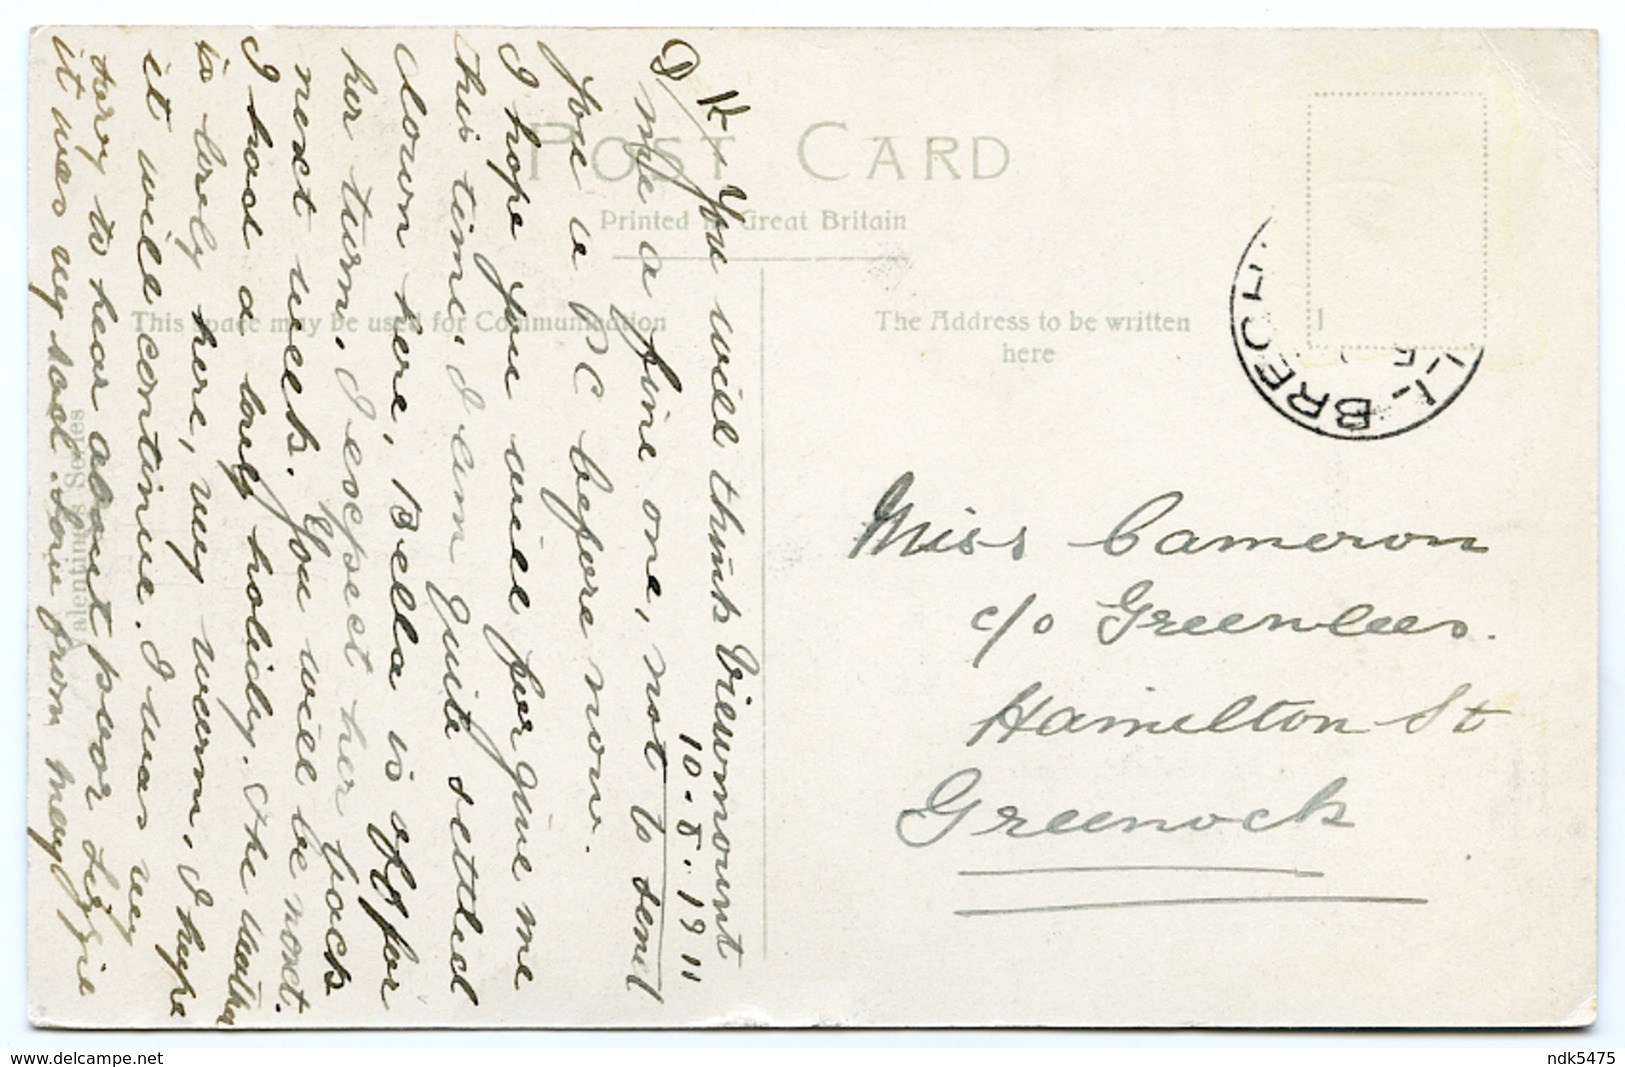 POST CARD
Printed in Great Britain
This space may be used for Communication
The Address to be written
here
Valentine's Series
BRECH
Viewmount
10-8-1911
D/K/ You will think
me a fine one, not to send
you a PC before now.
I hope you will forgive me
this time, I am quite settled
down here, Bella is off for
her turn. I exepsect her back
next week. You will be next.
I had a lovly holidy. The weather
is lovly here, very warm. I hope
it will continue. I was very
sory to hear about poor Lizzie
it was very sad. Love from May
Miss Cameron
c/o Greenlees.
Hamilton St
Greenock
ndk5475
www.delcampe.net